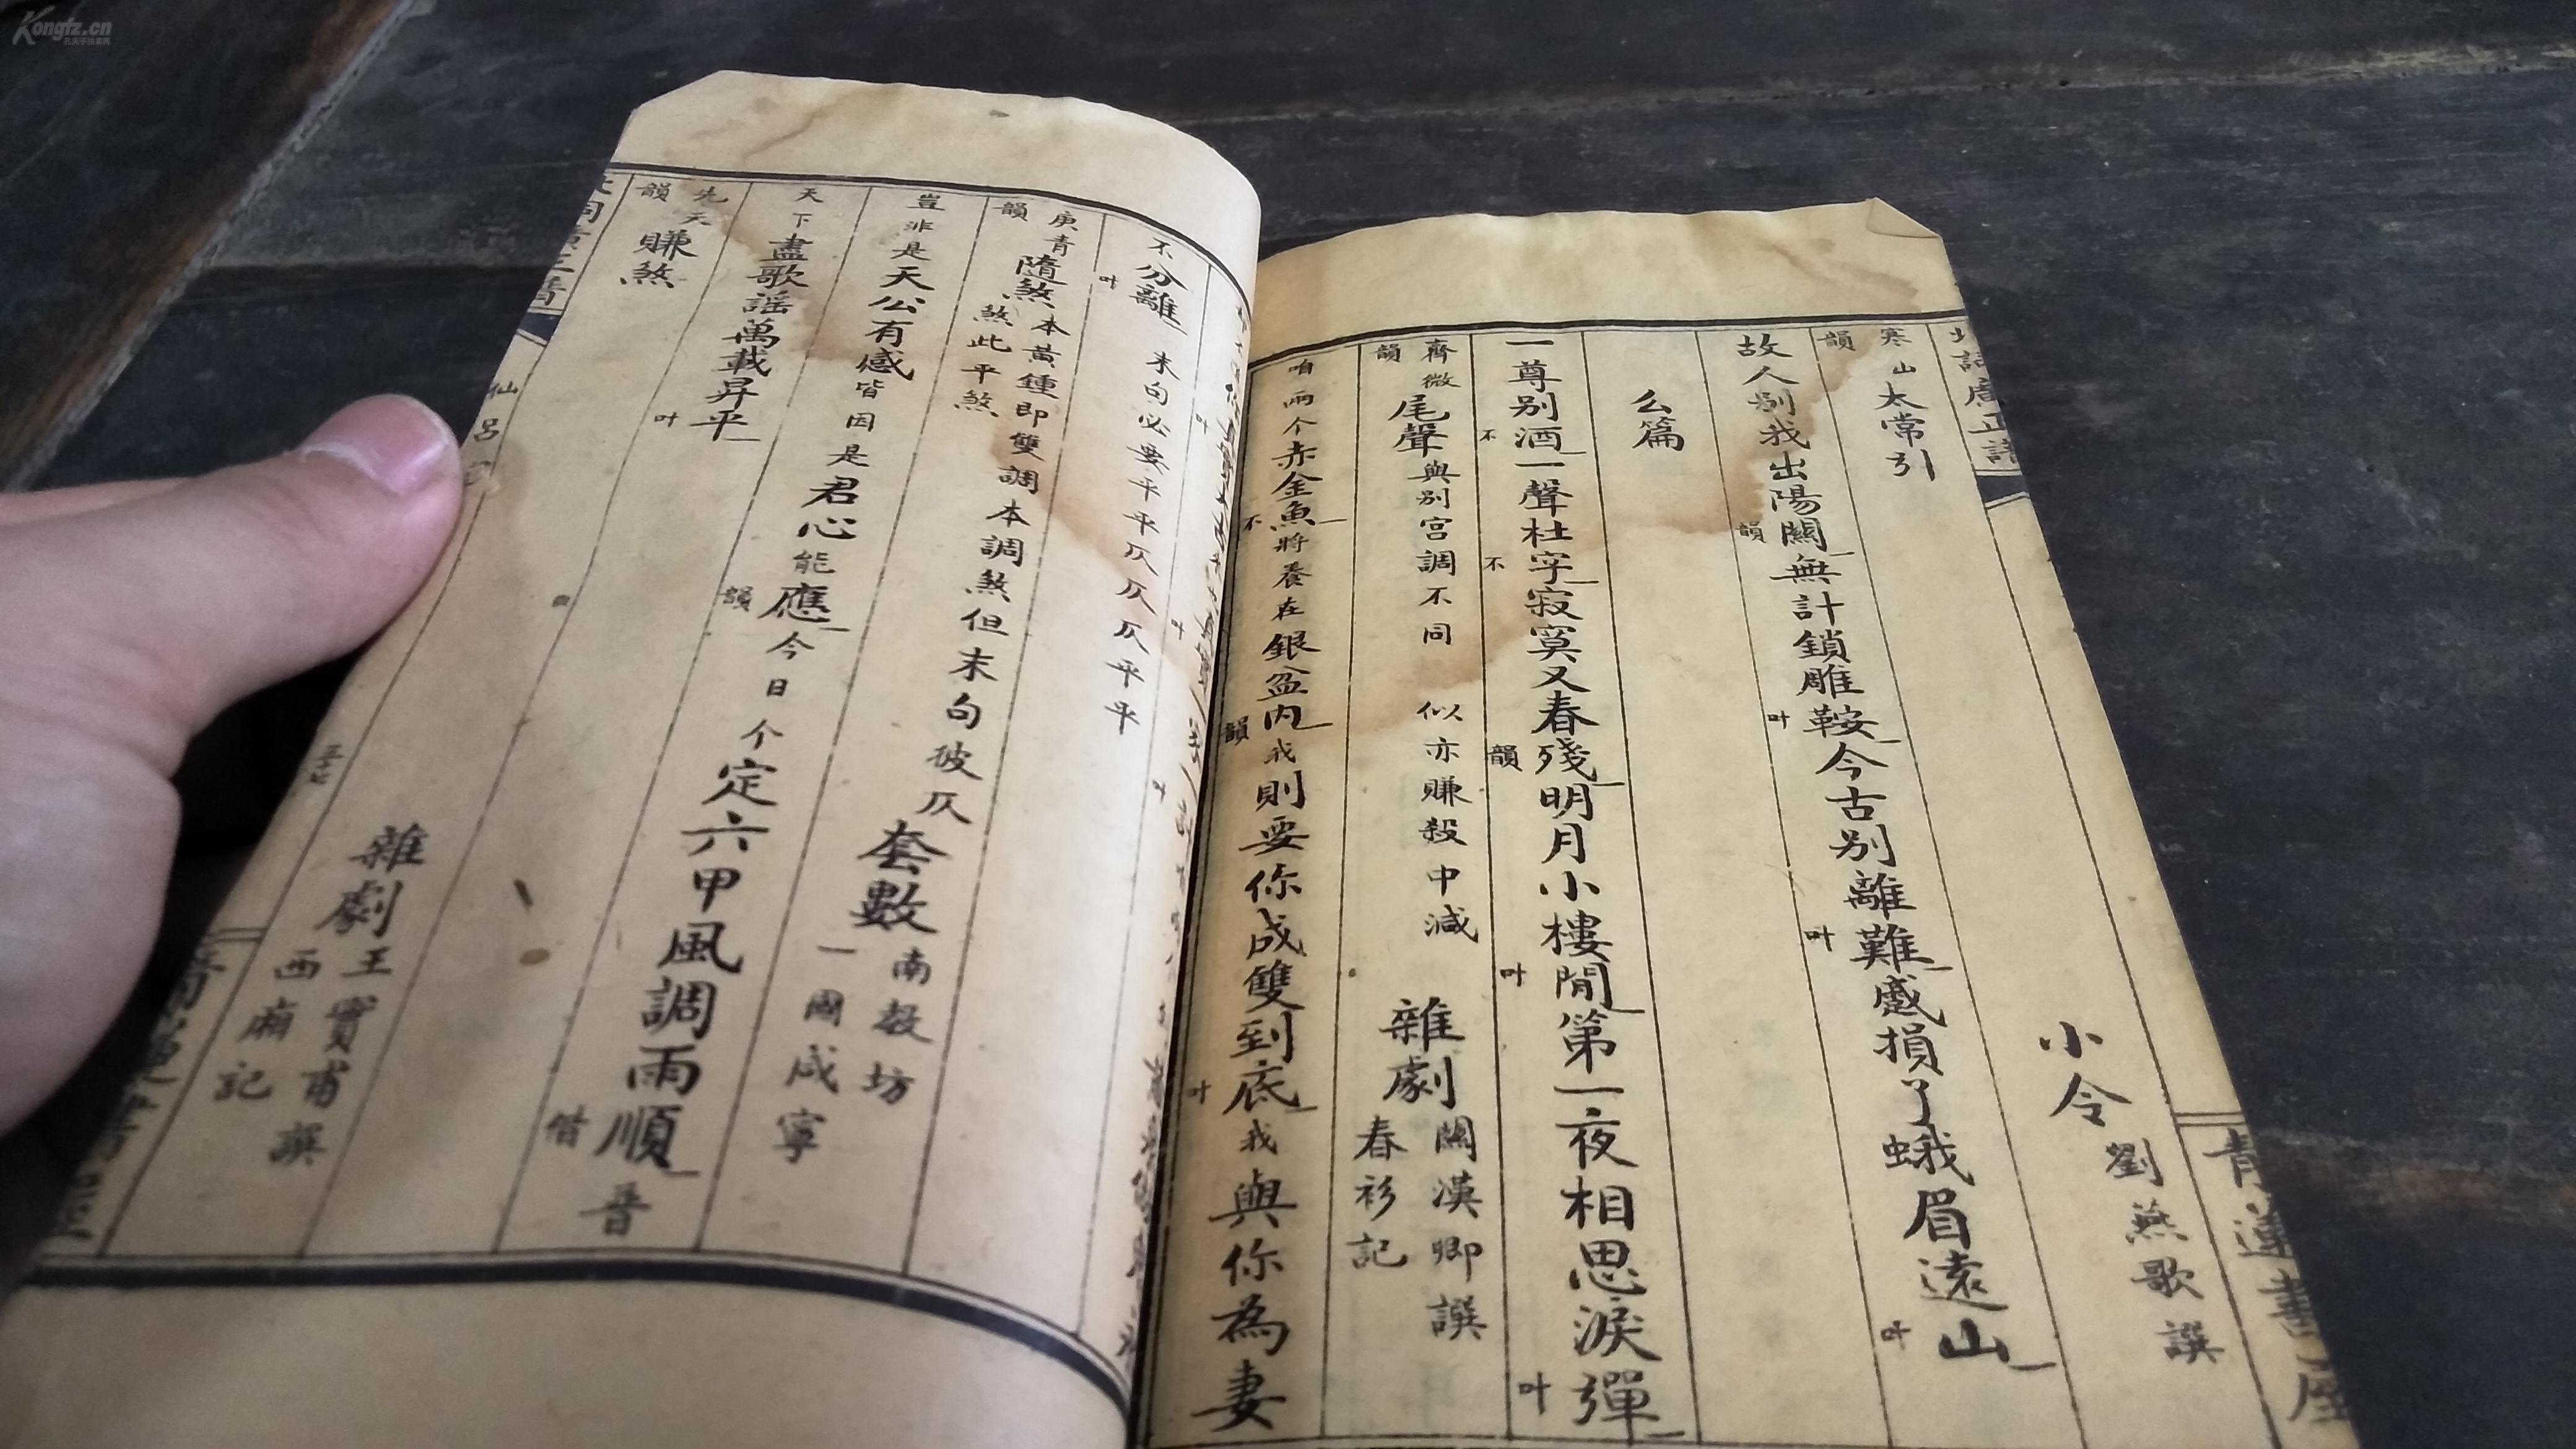 寒山韻 太常引 小令 劉燕歌譔
故人別我出陽關韻無計鎖雕鞍叶今古別離難叶蹙損了蛾眉遠山叶
么篇
一尊別酒不一聲杜宇不寂寞又春殘韻明月小樓閒叶第一夜相思淚彈叶
齊微韻 尾聲 與別宮調不同 似亦賺殺中減 雜劇 關漢卿譔 春衫記
咱兩个赤金魚不將養在銀盆內韻我則要你成雙到底叶我與你為妻
不分離叶 末句必要平平仄仄仄平平
庚青韻 隨煞 本黃鍾即雙調本調煞但末句彼仄煞此平煞 套數 南教坊 一國咸寧
豈非是天公有感皆因是君心能應韻今日个定六甲風調雨順借普
天下盡歌謠萬載昇平叶
先天韻 賺煞 雜劇 王實甫譔 西廂記
仙呂
三十七
Kongfz.cn